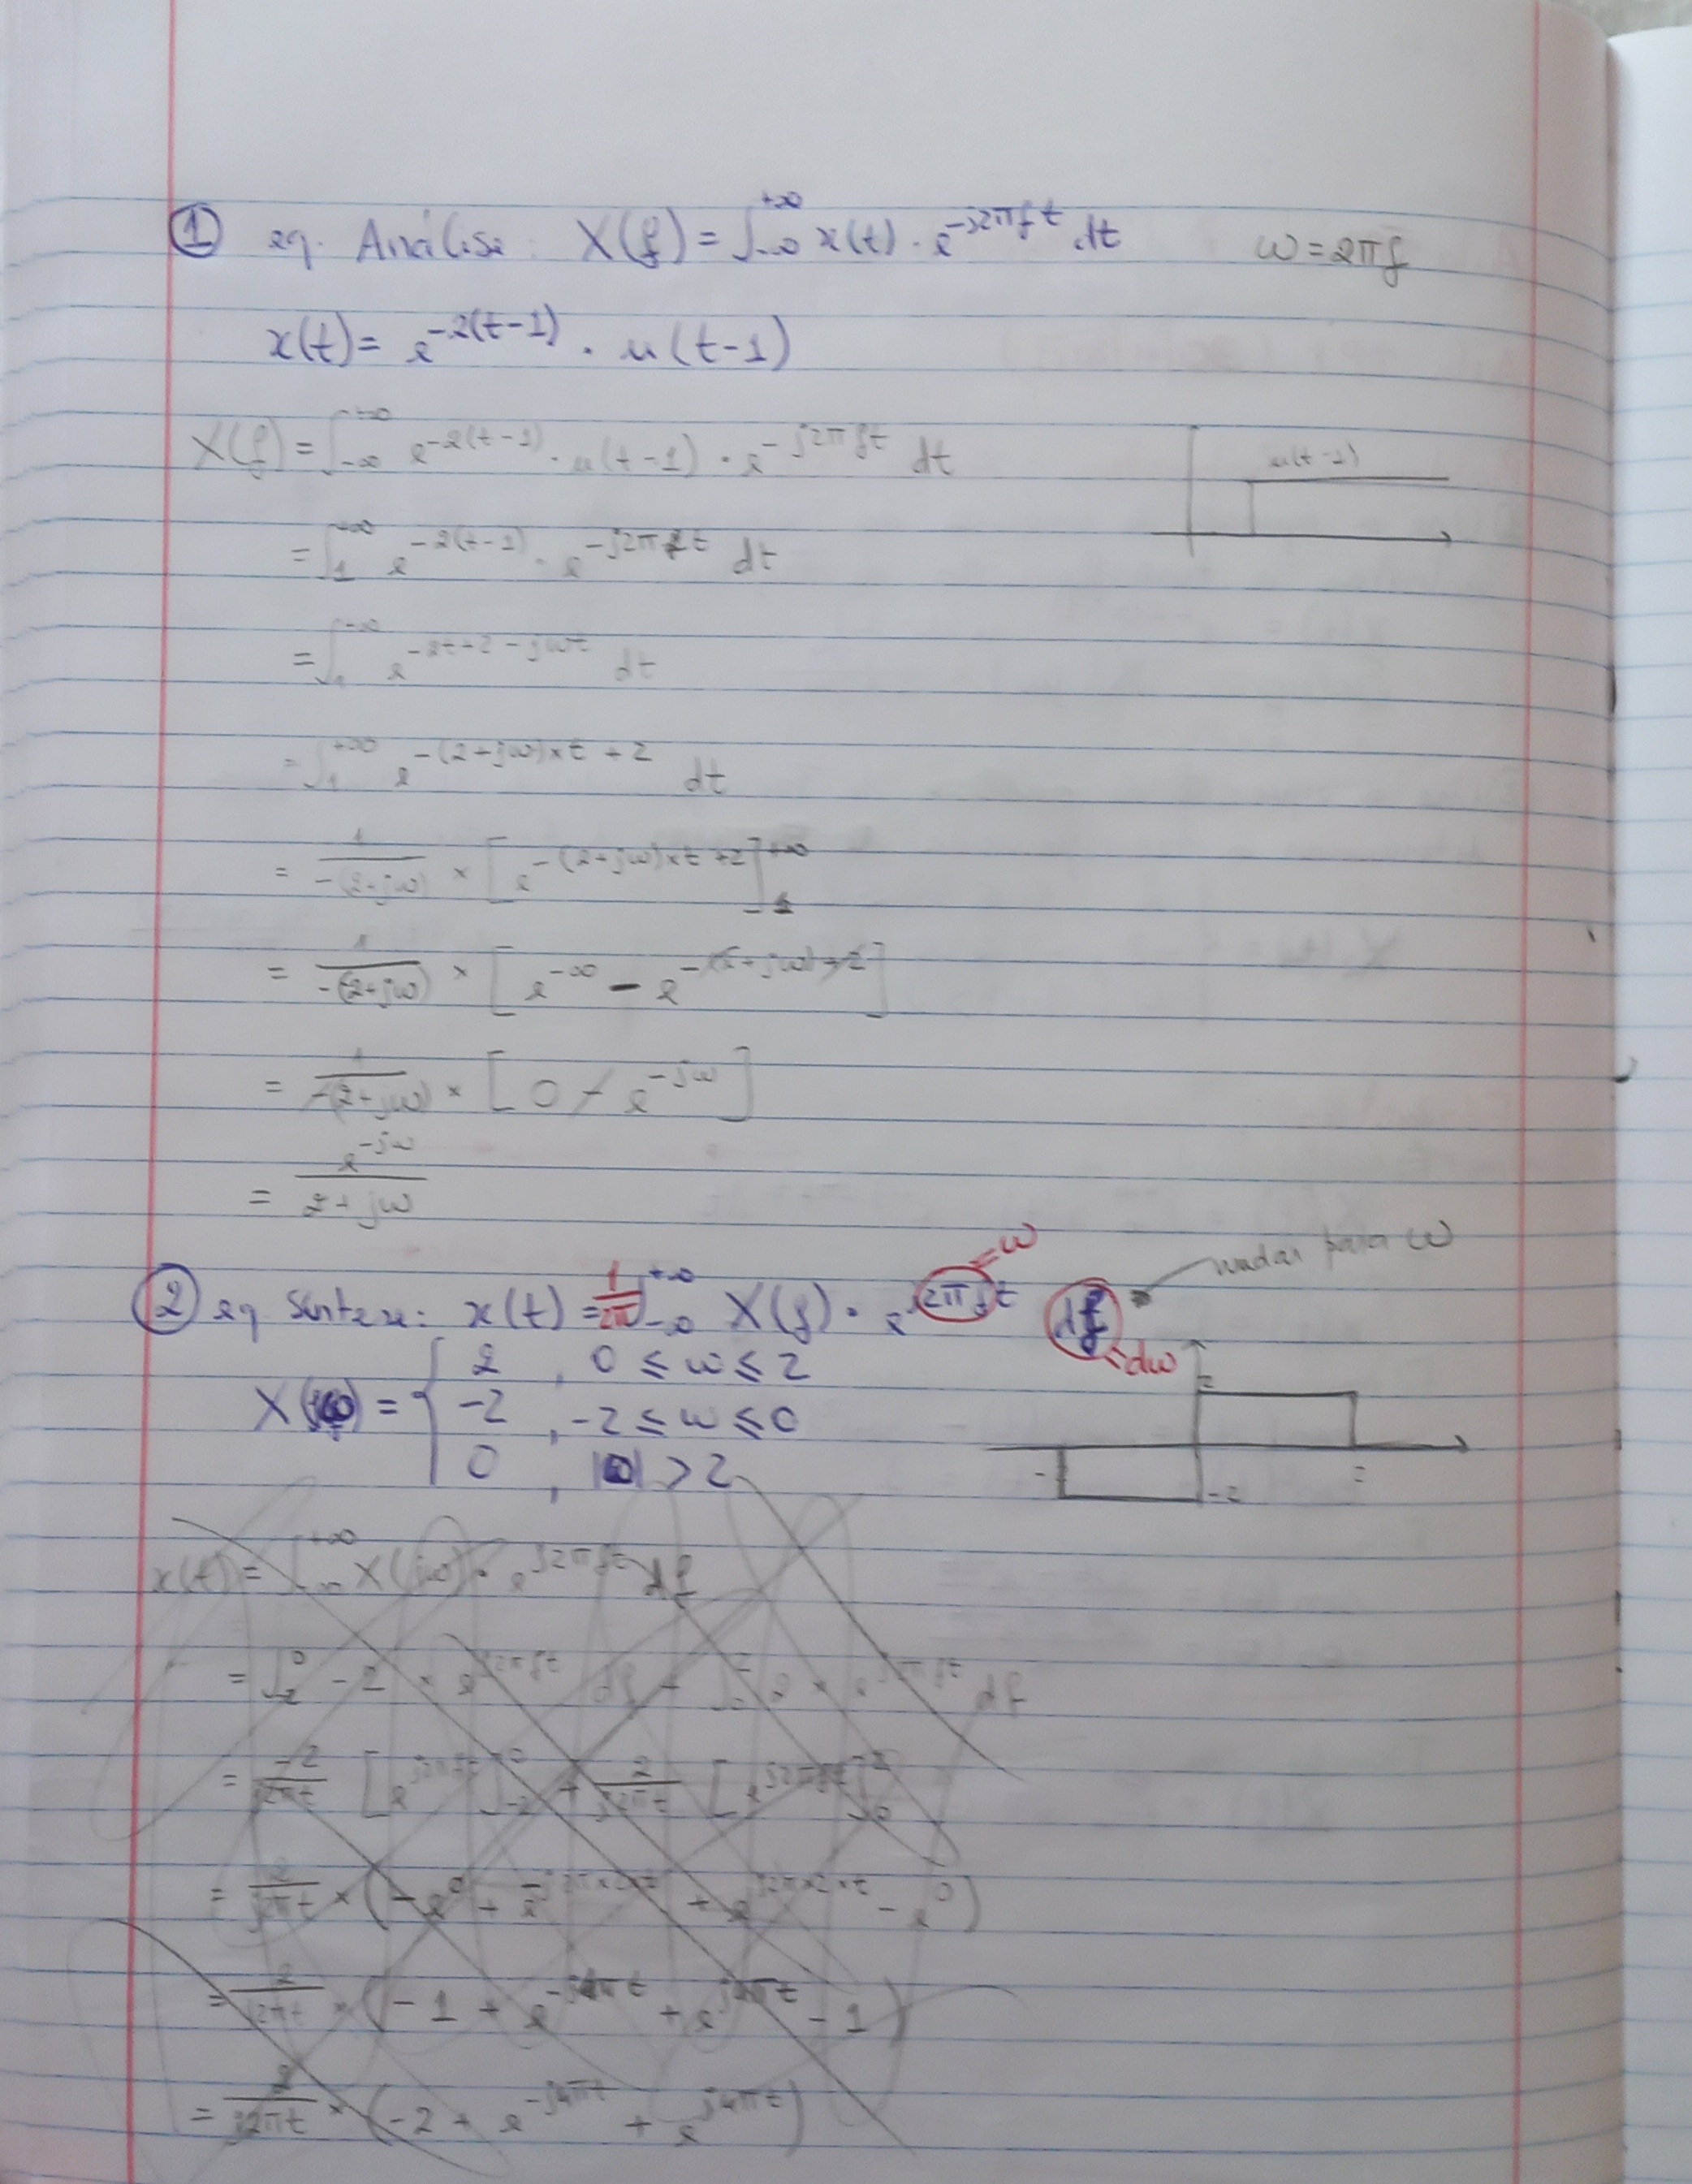 ① eq. Análise: X(f) = ∫_{-∞}^{+∞} x(t) · e^{-j2πft} dt    ω = 2πf
x(t) = e^{-2(t-1)} · u(t-1)
X(f) = ∫_{-∞}^{+∞} e^{-2(t-1)} · u(t-1) · e^{-j2πft} dt    u(t-1)
= ∫_{1}^{+∞} e^{-2(t-1)} · e^{-j2πft} dt
= ∫_{1}^{+∞} e^{-2t+2-jωt} dt
= ∫_{1}^{+∞} e^{-(2+jω)×t+2} dt
= 1/-(2+jω) × [e^{-(2+jω)×t+2}]_{1}^{+∞}
= 1/-(2+jω) × [e^{-∞} - e^{-(2+jω)+2}]
= 1/-(2+jω) × [0 - e^{-jω}]
= e^{-jω}/2+jω
② eq Síntese: x(t) = 1/2π ∫_{-∞}^{+∞} X(f) · e^{j2πft} df    = ω    mudar para ω
= dω
X(jω) = { 2 , 0 ≤ ω ≤ 2
-2 , -2 ≤ ω ≤ 0
0 , |ω| > 2
2
-2
2
-2
x(t) = ∫_{-∞}^{+∞} X(jω) · e^{j2πft} df
= ∫_{-2}^{0} -2 × e^{j2πft} df + ∫_{0}^{2} 2 × e^{j2πft} df
= -2/j2πt [e^{j2πft}]_{-2}^{0} + 2/j2πt [e^{j2πft}]_{0}^{2}
= 2/j2πt × (-e^{0} + e^{-j2π×2×t} + e^{j2π×2×t} - e^{0})
= 2/j2πt × (-1 + e^{-j4πt} + e^{j4πt} - 1)
= 2/j2πt × (-2 + e^{-j4πt} + e^{j4πt})